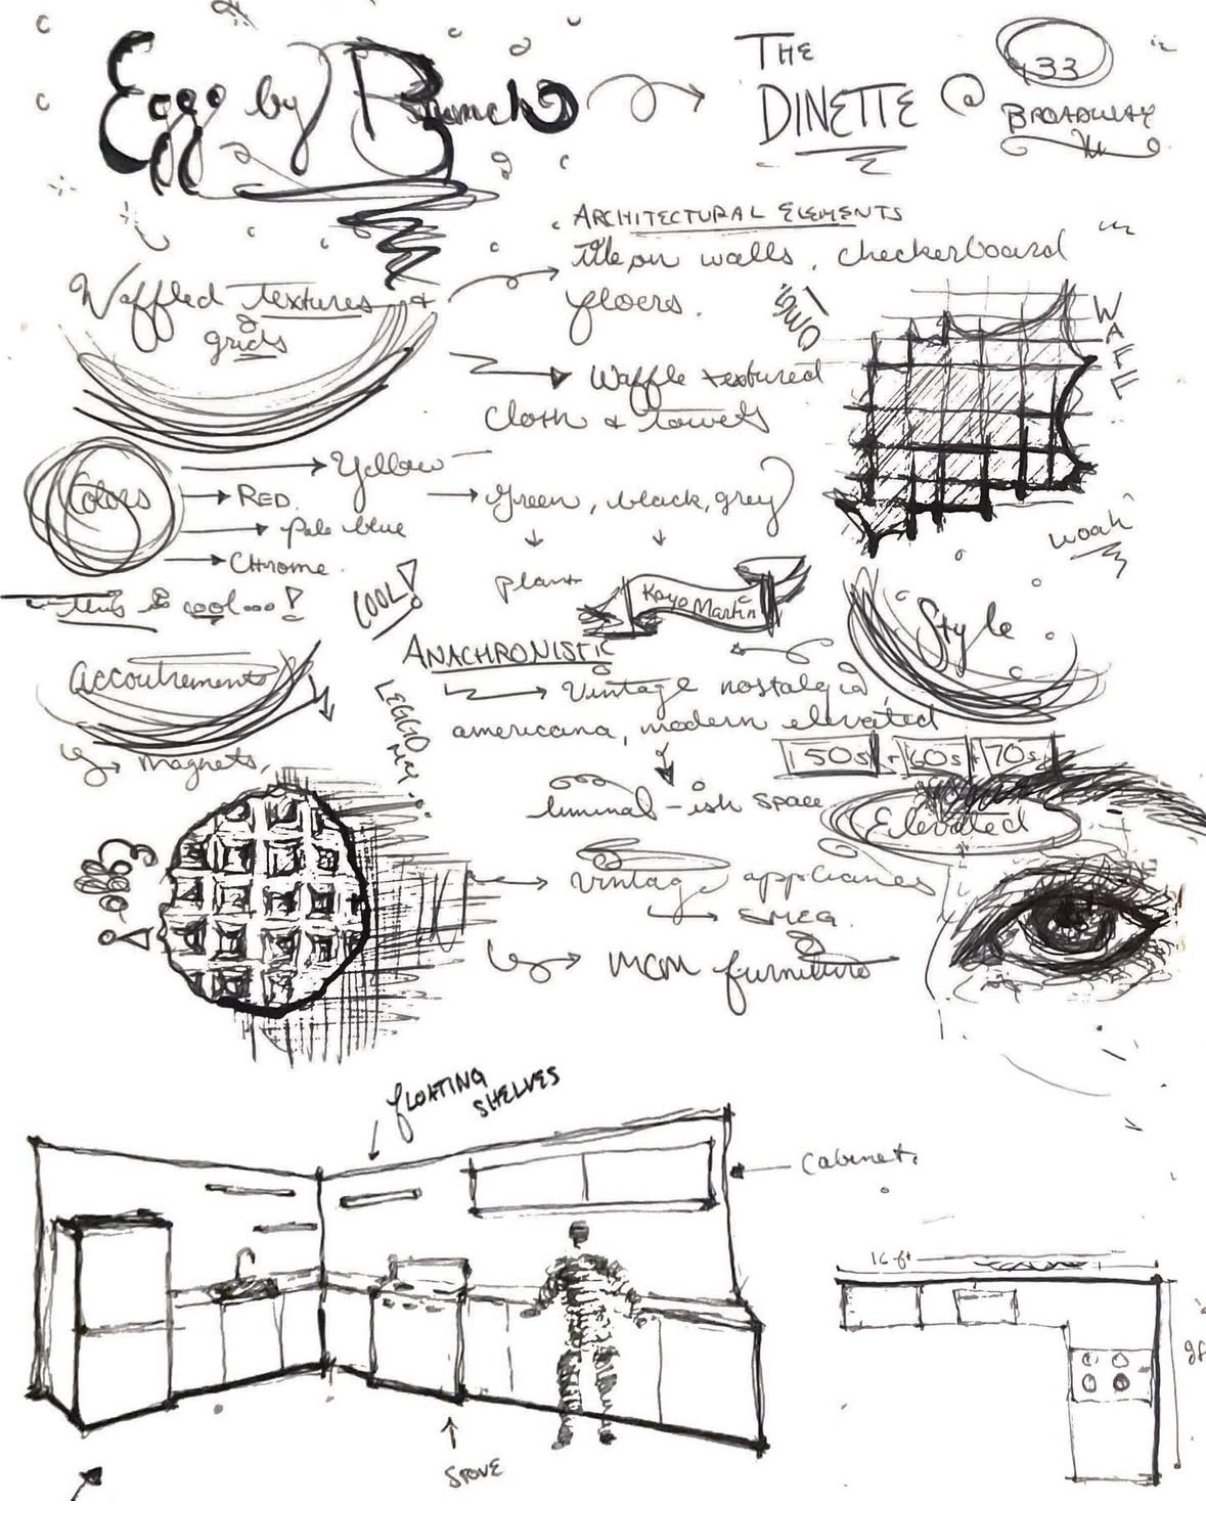 Eggo by Brunch
THE
DINETTE @
33
BROADWAY
ARCHITECTURAL ELEMENTS
tile on walls, checkerboard
floors.
Waffled textures &
grids
Waffle textured
cloth & towels
WAFF
Colors
Yellow
RED.
Pale blue
Chrome.
Green, black, grey
plant
Kayo Martin
woah
this is cool...!
COOL!
Style
ANACHRONISTIC
Vintage nostalgia,
americana, modern elevated
50s + 60s + 70s
Elevated
liminal-ish space
accoutrements
magnets,
LEGGO
MY
Vintage appliances
SMEG.
MCM furniture
FLOATING
SHELVES
Cabinets
STOVE
16 ft